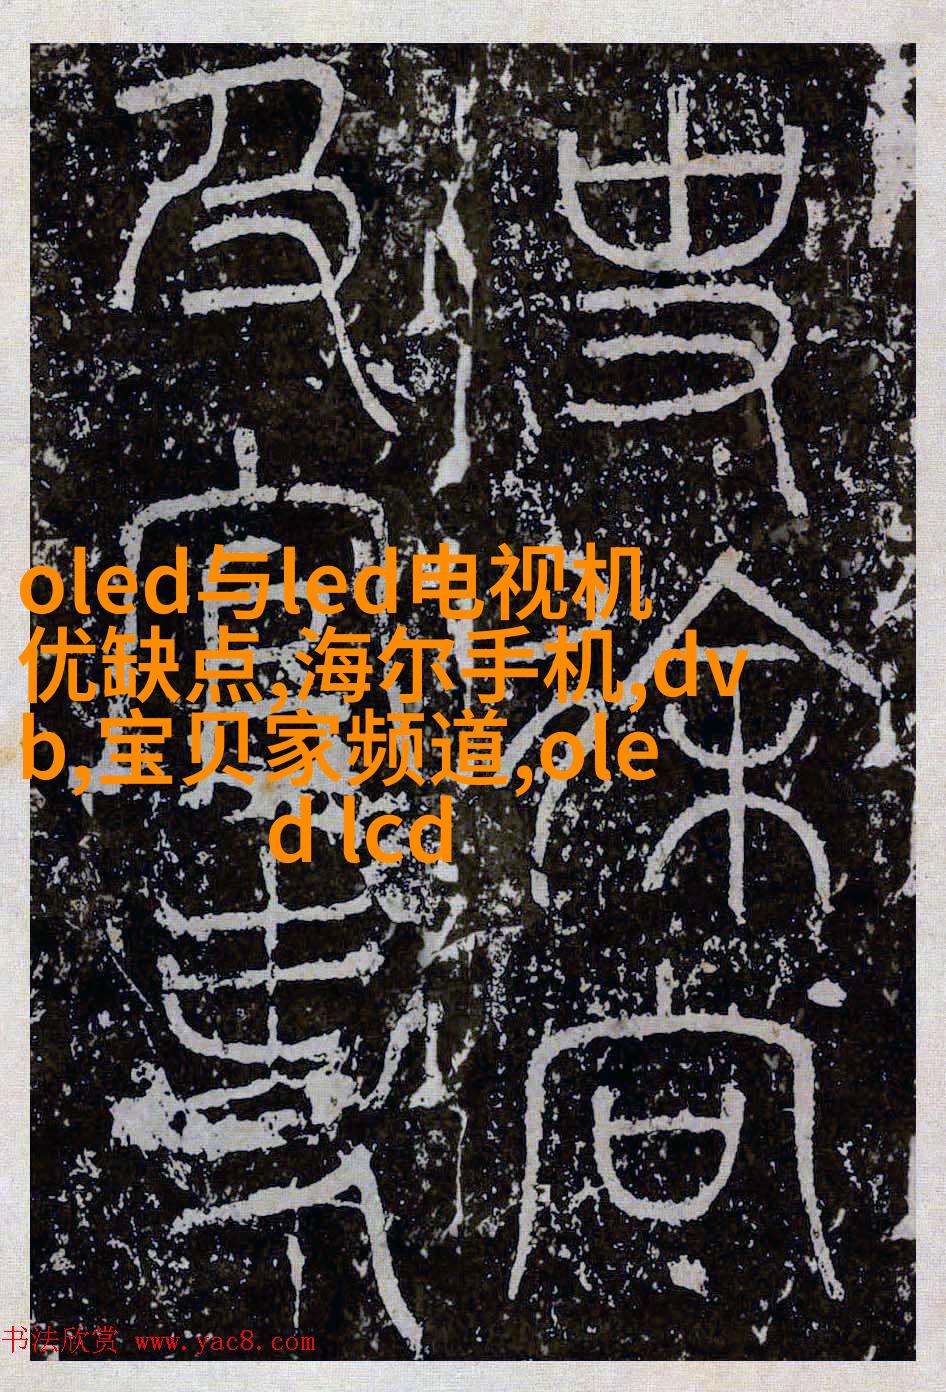 史徐尚
及
oled与led电视机
优缺点,海尔手机,dv
b,宝贝家频道,ole
d lcd
书法欣赏 www.yac8.com